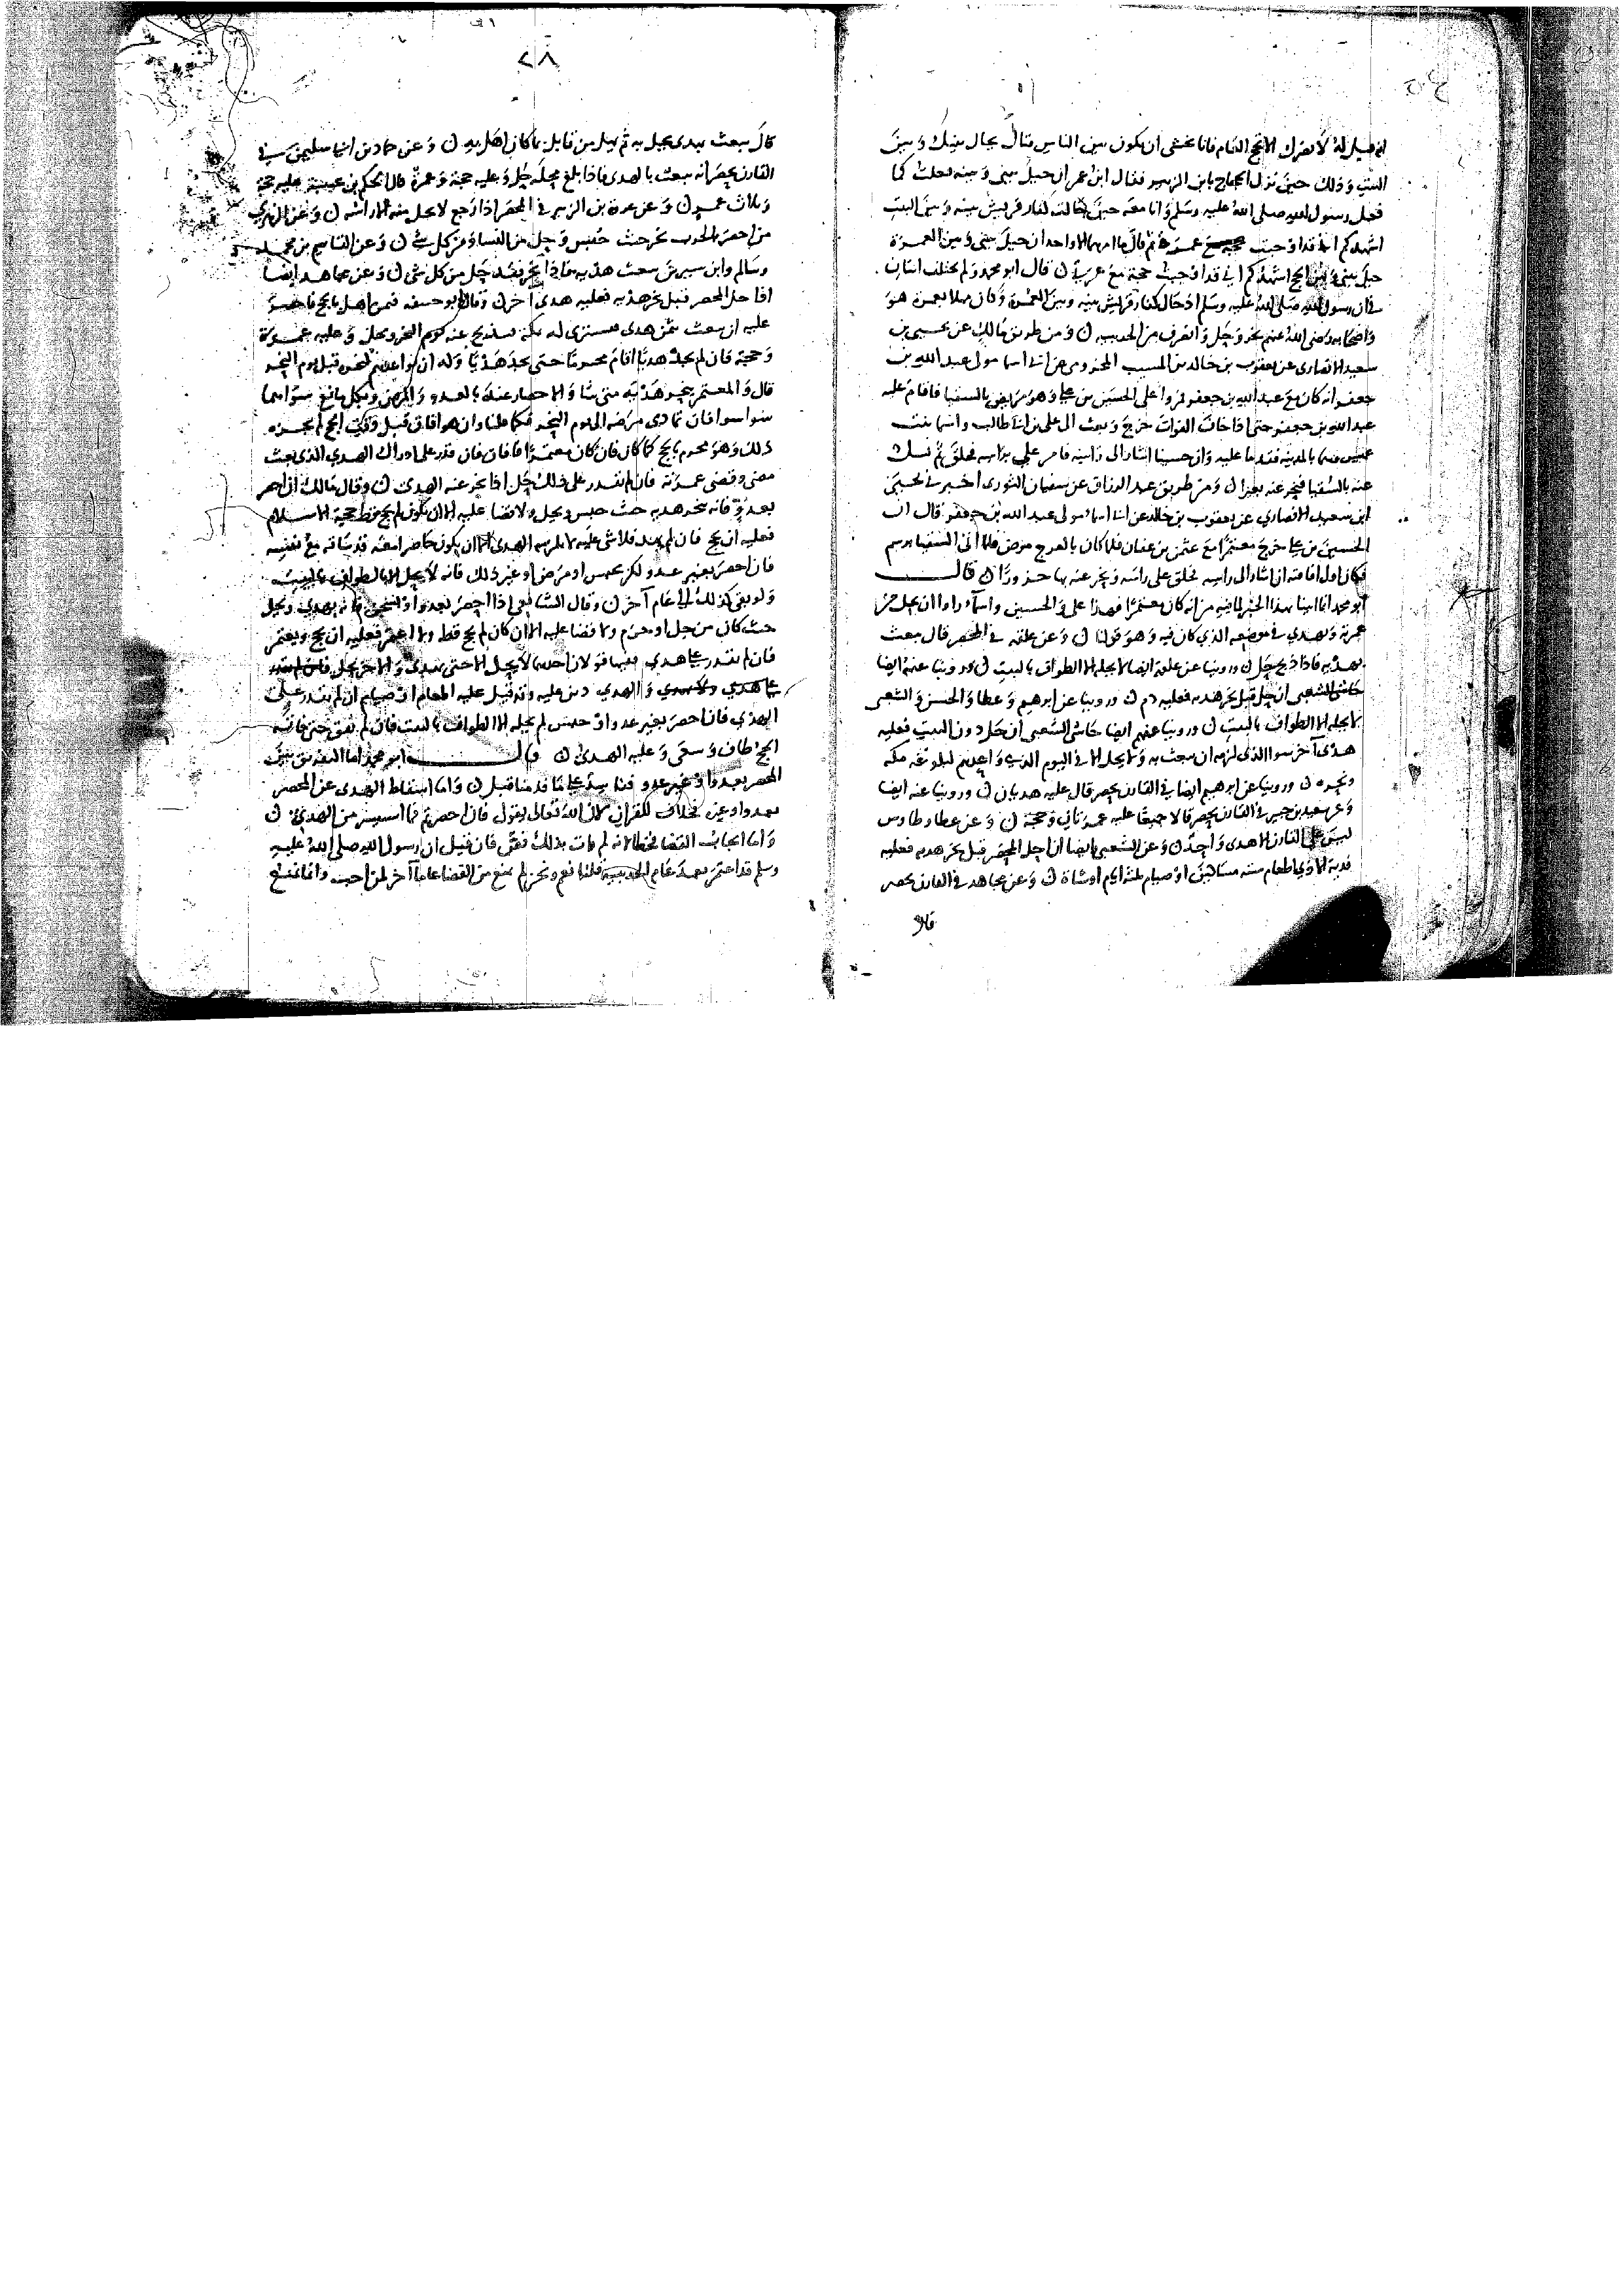 انه قيل له لا يضرك الا تحج العام فانا نخشى ان يكون بين الناس قتال يحال بينك وبين
البيت وذلك حين نزل الحجاج بابن الزبير فقال ابن عمر ان حيل بيني وبينه فعلت كما
فعل رسول الله صلى الله عليه وسلم وانا معه حين حالت كفار قريش بينه وبين البيت
اشهدكم اني قد اوجبت عمرة ثم قال ما امرهما الا واحد ان حيل بيني وبين العمرة
حيل بيني وبين الحج اشهدكم اني قد اوجبت حجة مع عمرتي قال ابو محمد ولم يختلف اثنان
في ان رسول الله صلى الله عليه وسلم اذ حال كفار قريش بينه وبين العمرة وكان مهلا بعمرة هو
واصحابه رضي الله عنهم نحر وحل وانصرف من الحديبية ومن طريق مالك عن يحيى بن
سعيد الانصاري عن يعقوب بن خالد بن المسيب المخزومي عن ابي اسما مولى عبد الله بن
جعفر انه كان مع عبد الله بن جعفر فمروا على الحسين بن علي وهو مريض بالسقيا فاقام عليه
عبد الله بن جعفر حتى اذا خاف الفوات خرج وبعث الى علي بن ابي طالب واسما بنت
عميس وهما بالمدينة فقدما عليه وان حسينا اشار الى راسه فامر علي براسه فحلق ثم نسك
عنه بالسقيا فنحر عنه بعيرا ومن طريق عبد الرزاق عن سفيان الثوري اخبرني يحيى
ابن سعيد الانصاري عن يعقوب بن خالد عن ابي اسما مولى عبد الله بن جعفر قال ان
الحسين بن علي خرج معتمرا مع عثمن بن عفان فلما كان بالعرج مرض فلما اتى السقيا برسم
فكان اول افاقته ان اشار الى راسه فحلق علي راسه ونحر عنه بها جزورا قال
ابو محمد انما اتينا بهذا الخبر لما فيه من انه كان معتمرا فهذا علي والحسين واسماء راوا ان يحل من
عمرته ويهدي في موضعه الذي كان فيه وهو قولنا وعن علقمة في المحصر قال يبعث
بهديه فاذا ذبح حل وروينا عن علقمة ايضا لا يحله الا الطواف بالبيت وروينا عنهم ايضا
حاشى الشعبي ان حل قبل نحر هديه فعليه دم وروينا عن ابرهيم وعطا والحسن والشعبي
لا يحله الا الطواف بالبيت وروينا عنهم ايضا حاشى الشعبي ان حل دون البيت فعليه
هدي اخر سوا الذي لزمه ان يبعث به ولا يحل الا في اليوم الذي واعدهم لبلوغه مكة
ونحره وروينا عن ابرهيم ايضا في القارن يحصر قال عليه هديان وروينا عنه ايضا
وعن سعيد بن جبير في القارن يحصر قالا جميعا عليه عمرتان وحجة وعن عطا وطاوس
ليس على القارن الا هدي واحد وعن الشعبي ايضا ان احل المحصر قبل نحر هديه فعليه
فدية الاذى اطعام ستة مساكين او صيام ثلثة ايام او شاة وعن مجاهد في القارن يحصر
قال
٢٨
قال يبعث بهدي يحل به ثم يهل من قابل بما كان اهل به وعن حماد بن ابي سليمن في
القارن يحصر انه يبعث بالهدي فاذا بلغ محله حل وعليه حجة وعمرة قال الحكم بن عتيبة عليه حجة
وثلاث عمر وعن عروة بن الزبير في المحصر اذا رجع لا يحل منه الا راسه وعن الزهري
من احصر بالحرب نحر حيث حبس وحل من النسا ومن كل شي وعن القاسم بن محمد
وسالم وابن سيرين يبعث هديه فاذا نحر فقد حل من كل شي وعن مجاهد ايضا
اذا حل المحصر قبل نحر هديه فعليه هدي اخر وقال ابو حنيفة فمن اهل بالحج فاحصر
عليه ان يبعث ثمن هدي فيشترى له بمكة فيذبح عنه يوم النحر ويحل وعليه عمرة
وحجة فان لم يجد هديا اقام محرما حتى يجد هديا وله ان يواعدهم لنحره قبل يوم النحر
قال والمعتمر ينحر هديه متى شا والاحصار عنده بالعدو والمرض وبكل مانع سواهما
سوا سوا فان تمادى مرضه الى يوم النحر فكما قلنا وان هو افاق قبل وقت الحج لم يجزه
ذلك وهو محرم بالحج كما كان فان كان معتمرا فافاق فان قدر على ادراك الهدي الذي بعث
مضى وقضى عمرته فان لم يقدر على ذلك حل اذا نحر عنه الهدي وقال مالك ان احصر
بعدو فانه ينحر هديه حيث حبس ويحل ولا قضا عليه الا ان يكون لم يحج قط حجة الاسلام
فعليه ان يحج فان لم يهد فلا شي عليه لا يلزمه الهدي الا ان يكون حاضرا معه قد ساقه مع نفسه
فان احصر بغير عدو لكن بحبس او مرض او غير ذلك فانه لا يحل الا بالطواف بالبيت
ولو بقي كذلك الى عام آخر وقال الشافعي اذا احصر بعدو او بسجن فانه يهدي ويحل
حيث كان من حل او حرم ولا قضا عليه الا ان كان لم يحج قط ولا اعتمر فعليه ان يحج ويعتمر
فان لم يقدر على هدي ففيها قولان احدهما لا يحل الا حتى يهدي والاخر يحل
والهدي دين عليه وقد قيل عليه اطعام او صيام ان لم يقدر على
الهدي فان احصر بغير عدو او حبس لم يحله الا الطواف بالبيت فان لم يفق حتى فاته
الحج طاف وسعى وعليه الهدي قال ابو محمد اما التفريق بين
المحصر بعدو او غير عدو وقد بينا على ما قدمنا قبل واما اسقاط الهدي عن المحصر
بعدو او غيره فخلاف للقران لان الله تعالى يقول فان احصرتم فما استيسر من الهدي
واما ايجاب القضا فخطا لانه لم يات بذلك نص فان قيل ان رسول الله صلى الله عليه
وسلم قد اعتمر بعد عام الحديبية قلنا نعم ونحن لم نمنع من القضا عاما آخر لمن احب وانما نمنع